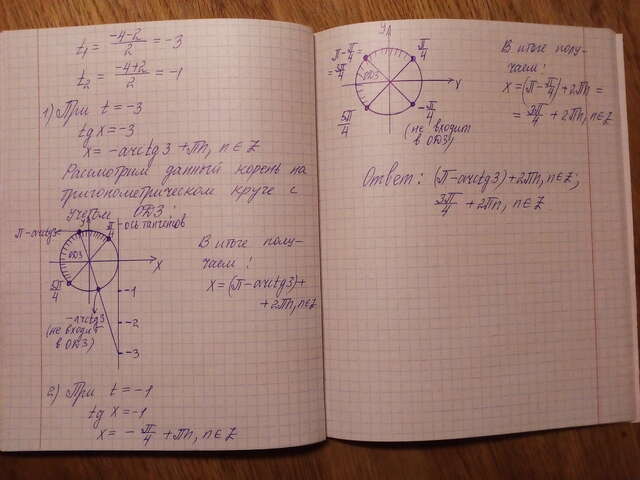 t₁ = (-4-2)/2 = -3
t₂ = (-4+2)/2 = -1
1) При t = -3
tg x = -3
x = -arctg 3 + πn, n ∈ Z
Рассмотрим данный корень на
тригонометрическом круге с
учётом ОДЗ:
π-arctg3
y
π/4
ось тангенсов
ОДЗ
x
5π/4
-1
-arctg3
(не входит
в ОДЗ)
-2
-3
В итоге полу-
чаем!
x = (π-arctg3)+
+2πn, n∈Z
2) При t = -1
tg x = -1
x = - π/4 + πn, n∈Z
y
π-π/4
=3π/4
π/4
ОДЗ
x
5π/4
-π/4
(не входит
в ОДЗ)
В итоге полу-
чаем!
x = (π-π/4)+2πn =
= 3π/4 + 2πn, n∈Z
Ответ: (π-arctg3)+2πn, n∈Z;
3π/4 + 2πn, n∈Z